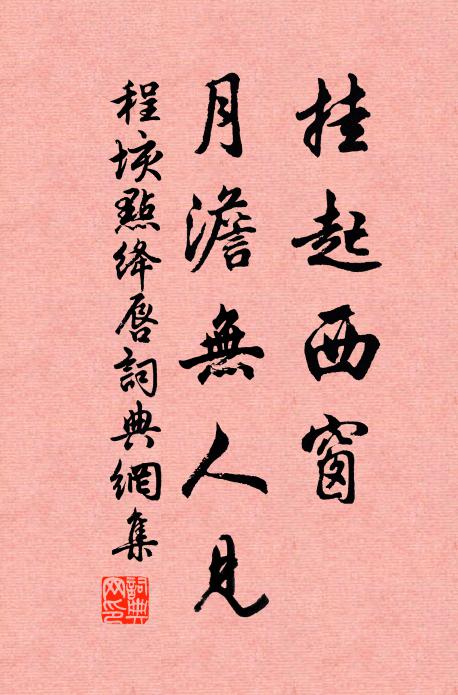 挂起西窗
月澹無人見
程垓點絳唇詞典網集
詞典
网印